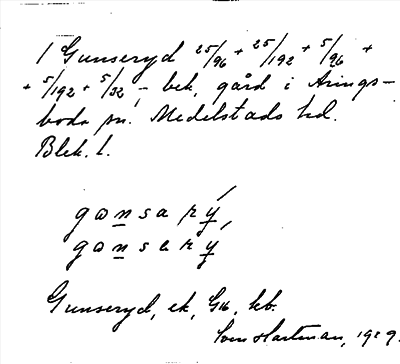 1 Gunseryd 25/96 + 25/192 + 5/96 +
+ 5/192 + 5/32, bek. gård i Arings-
boda sn. Medelstads hd.
Blek. l.
gansarý,
gansarý
Gunseryd, ek, Gtb, kb.
Sven Hartman, 1929.